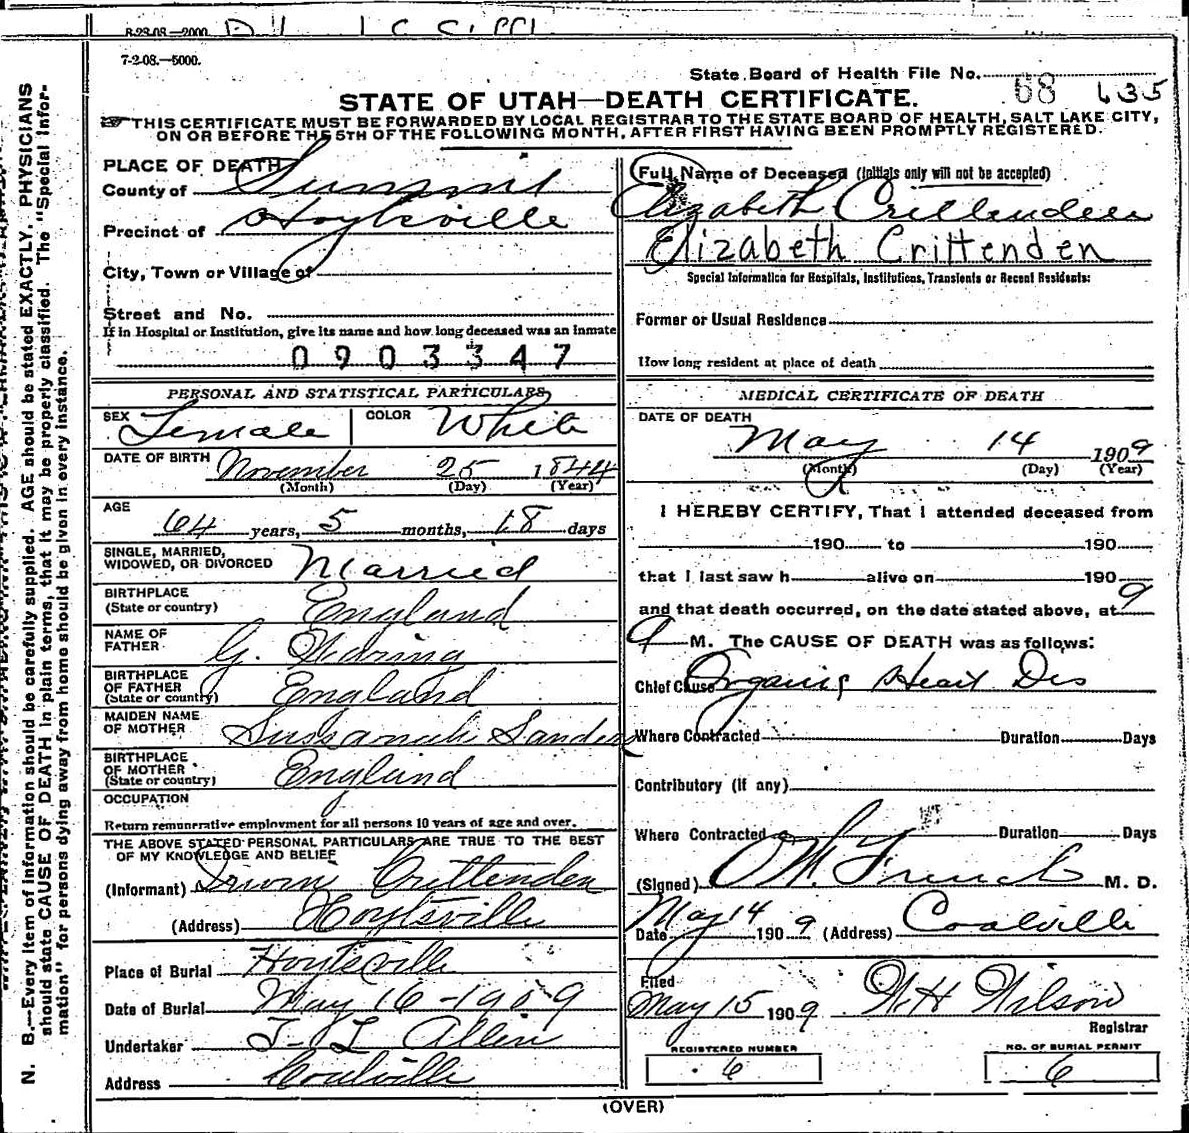 8-23-08.—2000.
7-2-08.—5000.
State Board of Health File No. 68 635
STATE OF UTAH—DEATH CERTIFICATE.
THIS CERTIFICATE MUST BE FORWARDED BY LOCAL REGISTRAR TO THE STATE BOARD OF HEALTH, SALT LAKE CITY,
ON OR BEFORE THE 5TH OF THE FOLLOWING MONTH, AFTER FIRST HAVING BEEN PROMPTLY REGISTERED.
PLACE OF DEATH
County of Summit
Precinct of Hoytsville
City, Town or Village of
Street and No.
If in Hospital or Institution, give its name and how long deceased was an inmate
0903347
PERSONAL AND STATISTICAL PARTICULARS
SEX Female COLOR White
DATE OF BIRTH November 25 1844
(Month) (Day) (Year)
AGE
64 years, 5 months, 18 days
SINGLE, MARRIED,
WIDOWED, OR DIVORCED Married
BIRTHPLACE
(State or country) England
NAME OF
FATHER G.
BIRTHPLACE
OF FATHER
(State or country) England
MAIDEN NAME
OF MOTHER Sushanah Sanders
BIRTHPLACE
OF MOTHER
(State or country) England
OCCUPATION
Return remunerative employment for all persons 10 years of age and over.
THE ABOVE STATED PERSONAL PARTICULARS ARE TRUE TO THE BEST
OF MY KNOWLEDGE AND BELIEF
(Informant) Crittenden
(Address) Hoytsville
Place of Burial Hoytsville
Date of Burial May 16-1909
Undertaker J- L Allen
Address Coalville
Full Name of Deceased (Initials only will not be accepted)
Elizabeth Crittenden
Elizabeth Crittenden
Special Information for Hospitals, Institutions, Transients or Recent Residents:
Former or Usual Residence
How long resident at place of death
MEDICAL CERTIFICATE OF DEATH
DATE OF DEATH
May 14 1909
(Month) (Day) (Year)
I HEREBY CERTIFY, That I attended deceased from
190 to 190
that I last saw h alive on 190
and that death occurred, on the date stated above, at 9
a M. The CAUSE OF DEATH was as follows:
Chief Cause Organic Heart Dis
Where Contracted Duration Days
Contributory (if any)
Where Contracted Duration Days
(Signed) M. French M. D.
Date May 14 1909 (Address) Coalville
Filed
May 15 1909 W H Wilson
Registrar
REGISTERED NUMBER NO. OF BURIAL PERMIT
6 6
(OVER)
N. B.—Every item of information should be carefully supplied. AGE should be stated EXACTLY. PHYSICIANS
should state CAUSE OF DEATH in plain terms, that it may be properly classified. The "Special Infor-
mation" for persons dying away from home should be given in every instance.